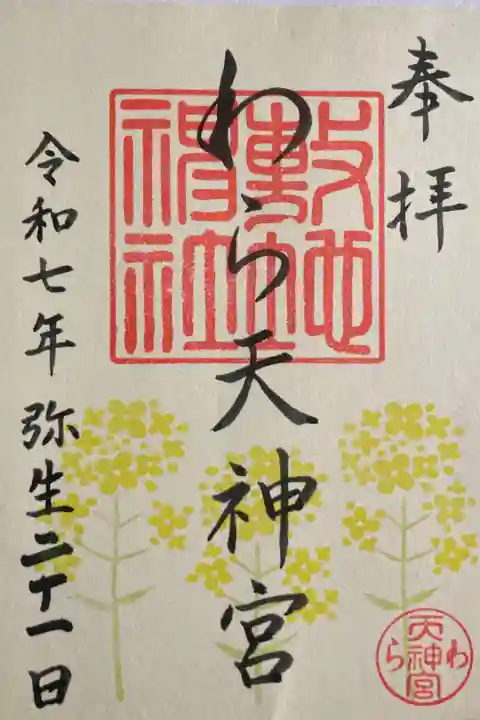 奉拝
わら天神宮
令和七年弥生二十一日
敷地
神社
わら
天神宮